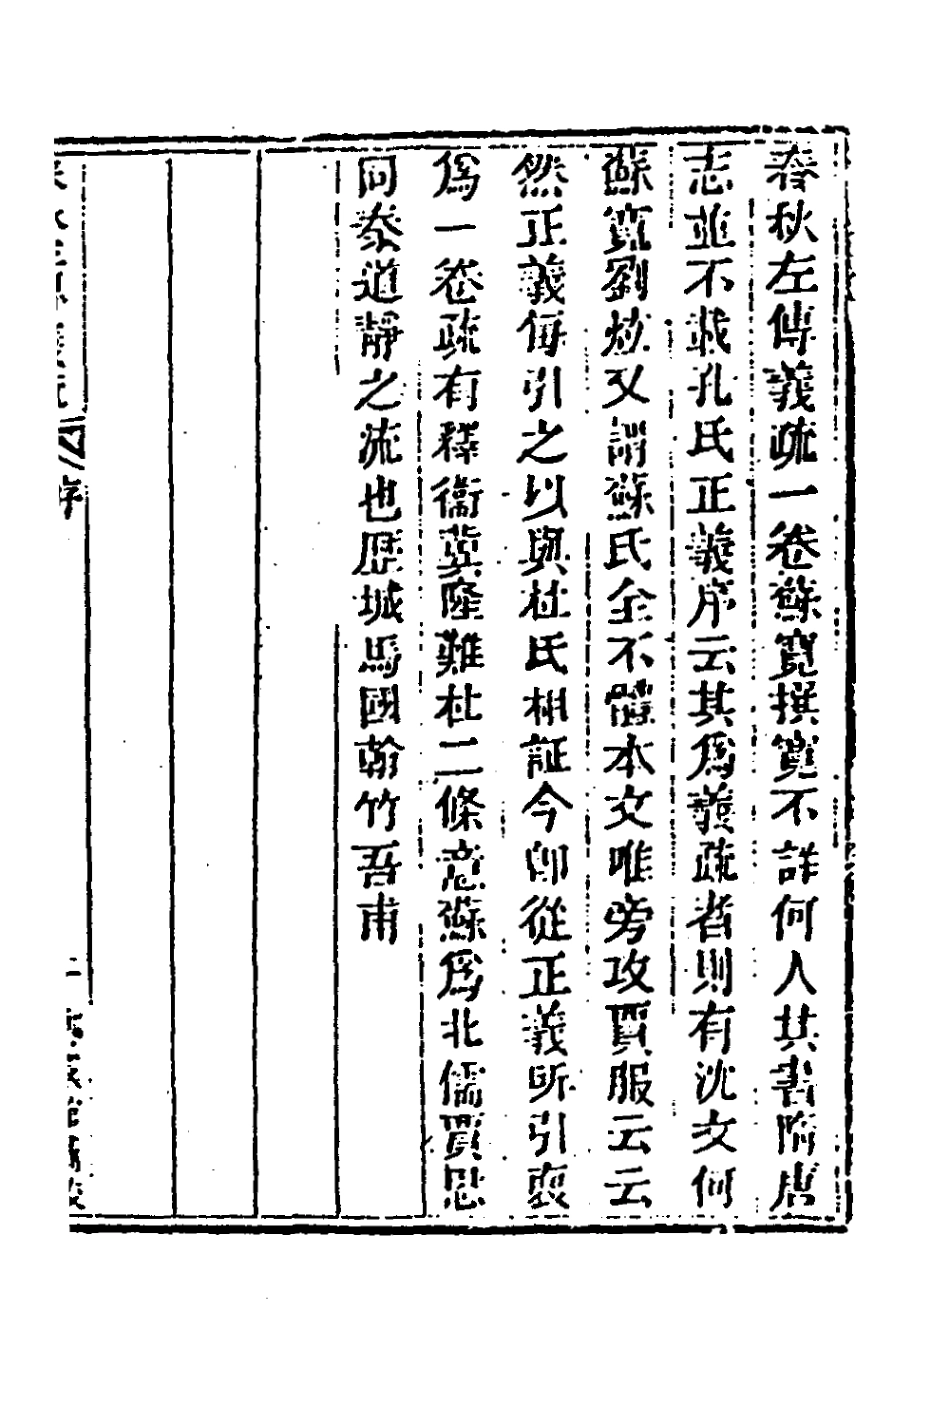 春秋左傳義疏一卷蘇寬撰寬不詳何人其書隋唐
志並不載孔氏正義序云其爲義疏者則有沈文何
蘇寬劉炫又謂蘇氏全不體本文唯旁攻賈服云云
然正義每引之以與杜氏相証今卽從正義所引裒
爲一卷疏有釋衞冀隆難杜二條意蘇爲北儒賈思
同秦道靜之流也歷城馬國翰竹吾甫
序
二